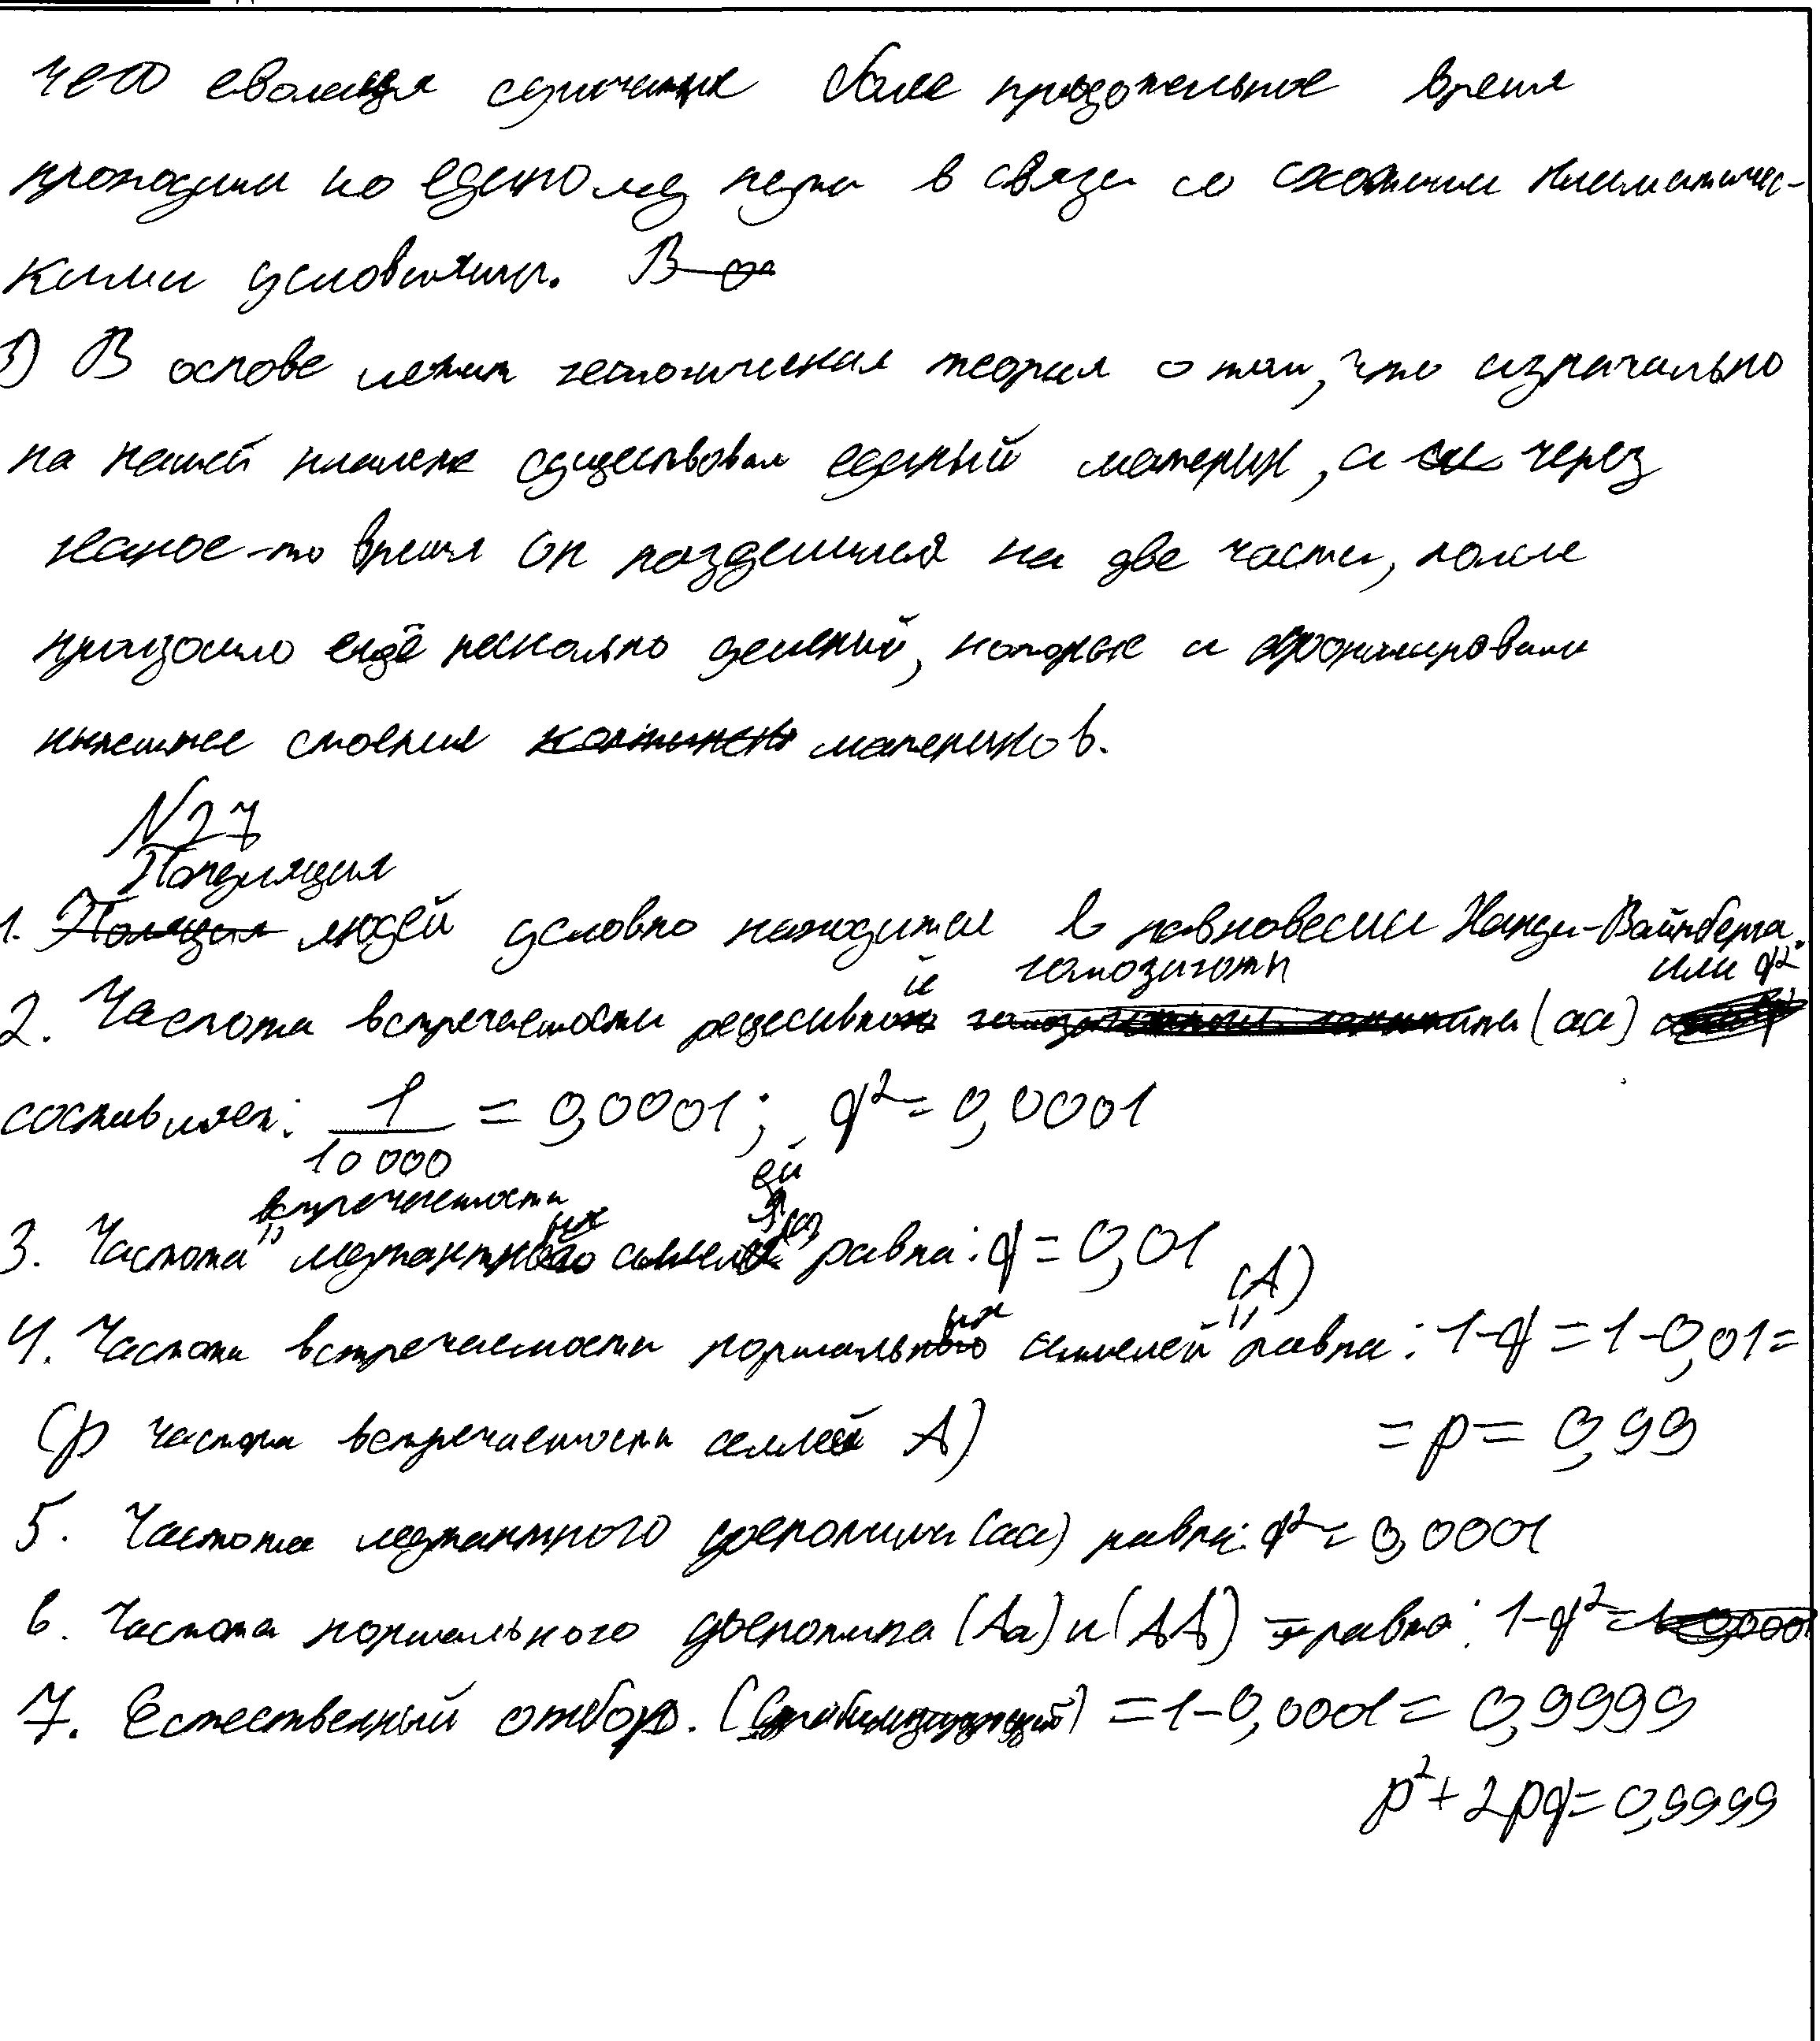 чего эволюция сумчатых более продолжительное время
проходила по единому пути в связи со схожими климатичес-
кими условиями. В
3) В основе лежит геологическая теория о том, что изначально
на нашей планете существовал единый материк, а через
какое-то время он разделился на две части, после
произошло ещё несколько делений, которые и сформировали
нынешнее строение континен материков.
N27
Популяция
1. Поляция людей условно находится в равновесии Харди-Вайнберга.
й гомозиготы или q²
2. Частота встречаемости рецессивно (aa)
составляет: 1/10 000 = 0,0001; q² = 0,0001
встречаемости ых ей
3. Частота мутантного аллеля (a) равна: q = 0,01
ых (A)
4. Частота встречаемости нормального аллелей равна: 1-q = 1-0,01=
(p частота встречаемости аллелей A) = p = 0,99
5. Частота мутантного фенотипа (aa) равна: q² = 0,0001
6. Частота нормального фенотипа (Aa) и (AA) равна: 1-q² = 1-0,0001
7. Естественный отбор. (Стабилизирующий) = 1-0,0001 = 0,9999
p² + 2pq = 0,9999